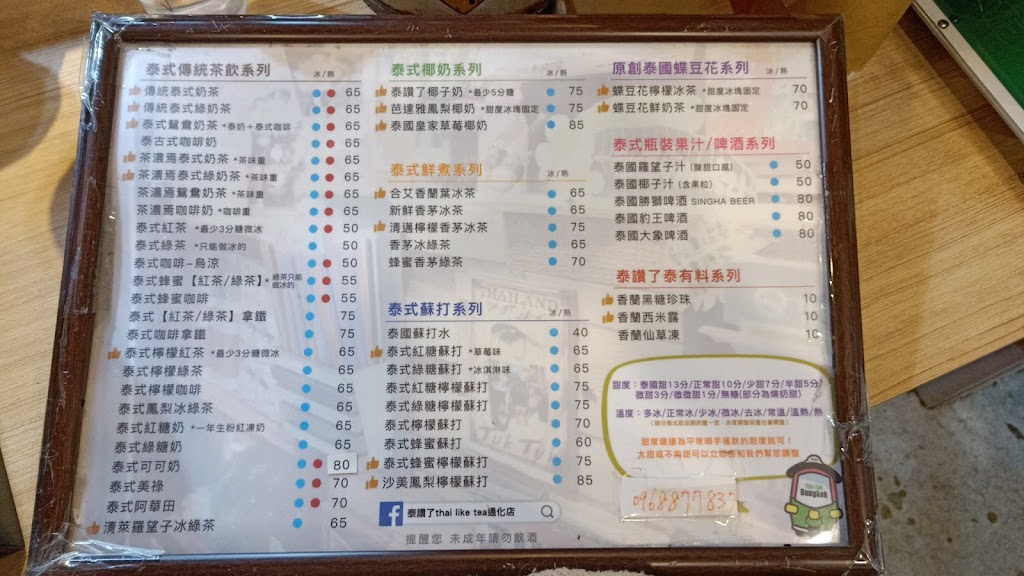 泰式傳統茶飲系列 冰/熱
傳統泰式奶茶 65
傳統泰式綠奶茶 65
泰式鴛鴦奶茶 *泰奶+泰式咖啡 65
泰古式咖啡奶 65
茶濃焉泰式奶茶 *茶味重 65
茶濃焉泰式綠奶茶 *茶味重 65
茶濃焉鴛鴦奶茶 *茶味重 65
茶濃焉咖啡奶 *咖啡重 65
泰式紅茶 *最少3分糖微冰 50
泰式綠茶 *只能做冰的 50
泰式咖啡-烏涼 50
泰式蜂蜜【紅茶/綠茶】*綠茶只能做冰的 55
泰式蜂蜜咖啡 55
泰式【紅茶/綠茶】拿鐵 75
泰式咖啡拿鐵 75
泰式檸檬紅茶 *最少3分糖微冰 65
泰式檸檬綠茶 65
泰式檸檬咖啡 65
泰式鳳梨冰綠茶 65
泰式紅糖奶 *一年生粉紅凍奶 65
泰式綠糖奶 65
泰式可可奶 80
泰式美祿 70
泰式阿華田 70
清萊羅望子冰綠茶 65
泰式椰奶系列 冰/熱
泰讚了椰子奶 *最少5分糖 75
芭達雅鳳梨椰奶 *甜度冰塊固定 75
泰國皇家草莓椰奶 85
泰式鮮煮系列 冰/熱
合艾香蘭葉冰茶 65
新鮮香茅冰茶 65
清邁檸檬香茅冰茶 75
香茅冰綠茶 65
蜂蜜香茅綠茶 70
泰式蘇打系列 冰/熱
泰國蘇打水 40
泰式紅糖蘇打 *草莓味 65
泰式綠糖蘇打 *冰淇淋味 65
泰式紅糖檸檬蘇打 75
泰式綠糖檸檬蘇打 75
泰式檸檬蘇打 70
泰式蜂蜜蘇打 60
泰式蜂蜜檸檬蘇打 75
沙美鳳梨檸檬蘇打 85
泰讚了thai like tea通化店
提醒您 未成年請勿飲酒
原創泰國蝶豆花系列 冰/熱
蝶豆花檸檬冰茶 *甜度冰塊固定 70
蝶豆花鮮奶茶 *甜度冰塊固定 70
泰式瓶裝果汁/啤酒系列
泰國羅望子汁(酸甜口感) 50
泰國椰子汁(含果粒) 50
泰國勝獅啤酒 SINGHA BEER 80
泰國豹王啤酒 80
泰國大象啤酒 80
泰讚了泰有料系列
香蘭黑糖珍珠 10
香蘭西米露 10
香蘭仙草凍 10
甜度:泰國甜13分/正常甜10分/少甜7分/半甜5分/
微甜3分/微微甜1分/無糖(部分為煉奶甜)
溫度:多冰/正常冰/少冰/微冰/去冰/常溫/溫熱/熱
甜度建議為平常喝手搖飲的甜度就可!
太甜或不夠甜可以立即告知我們幫您調整
0968877837
Bangkok